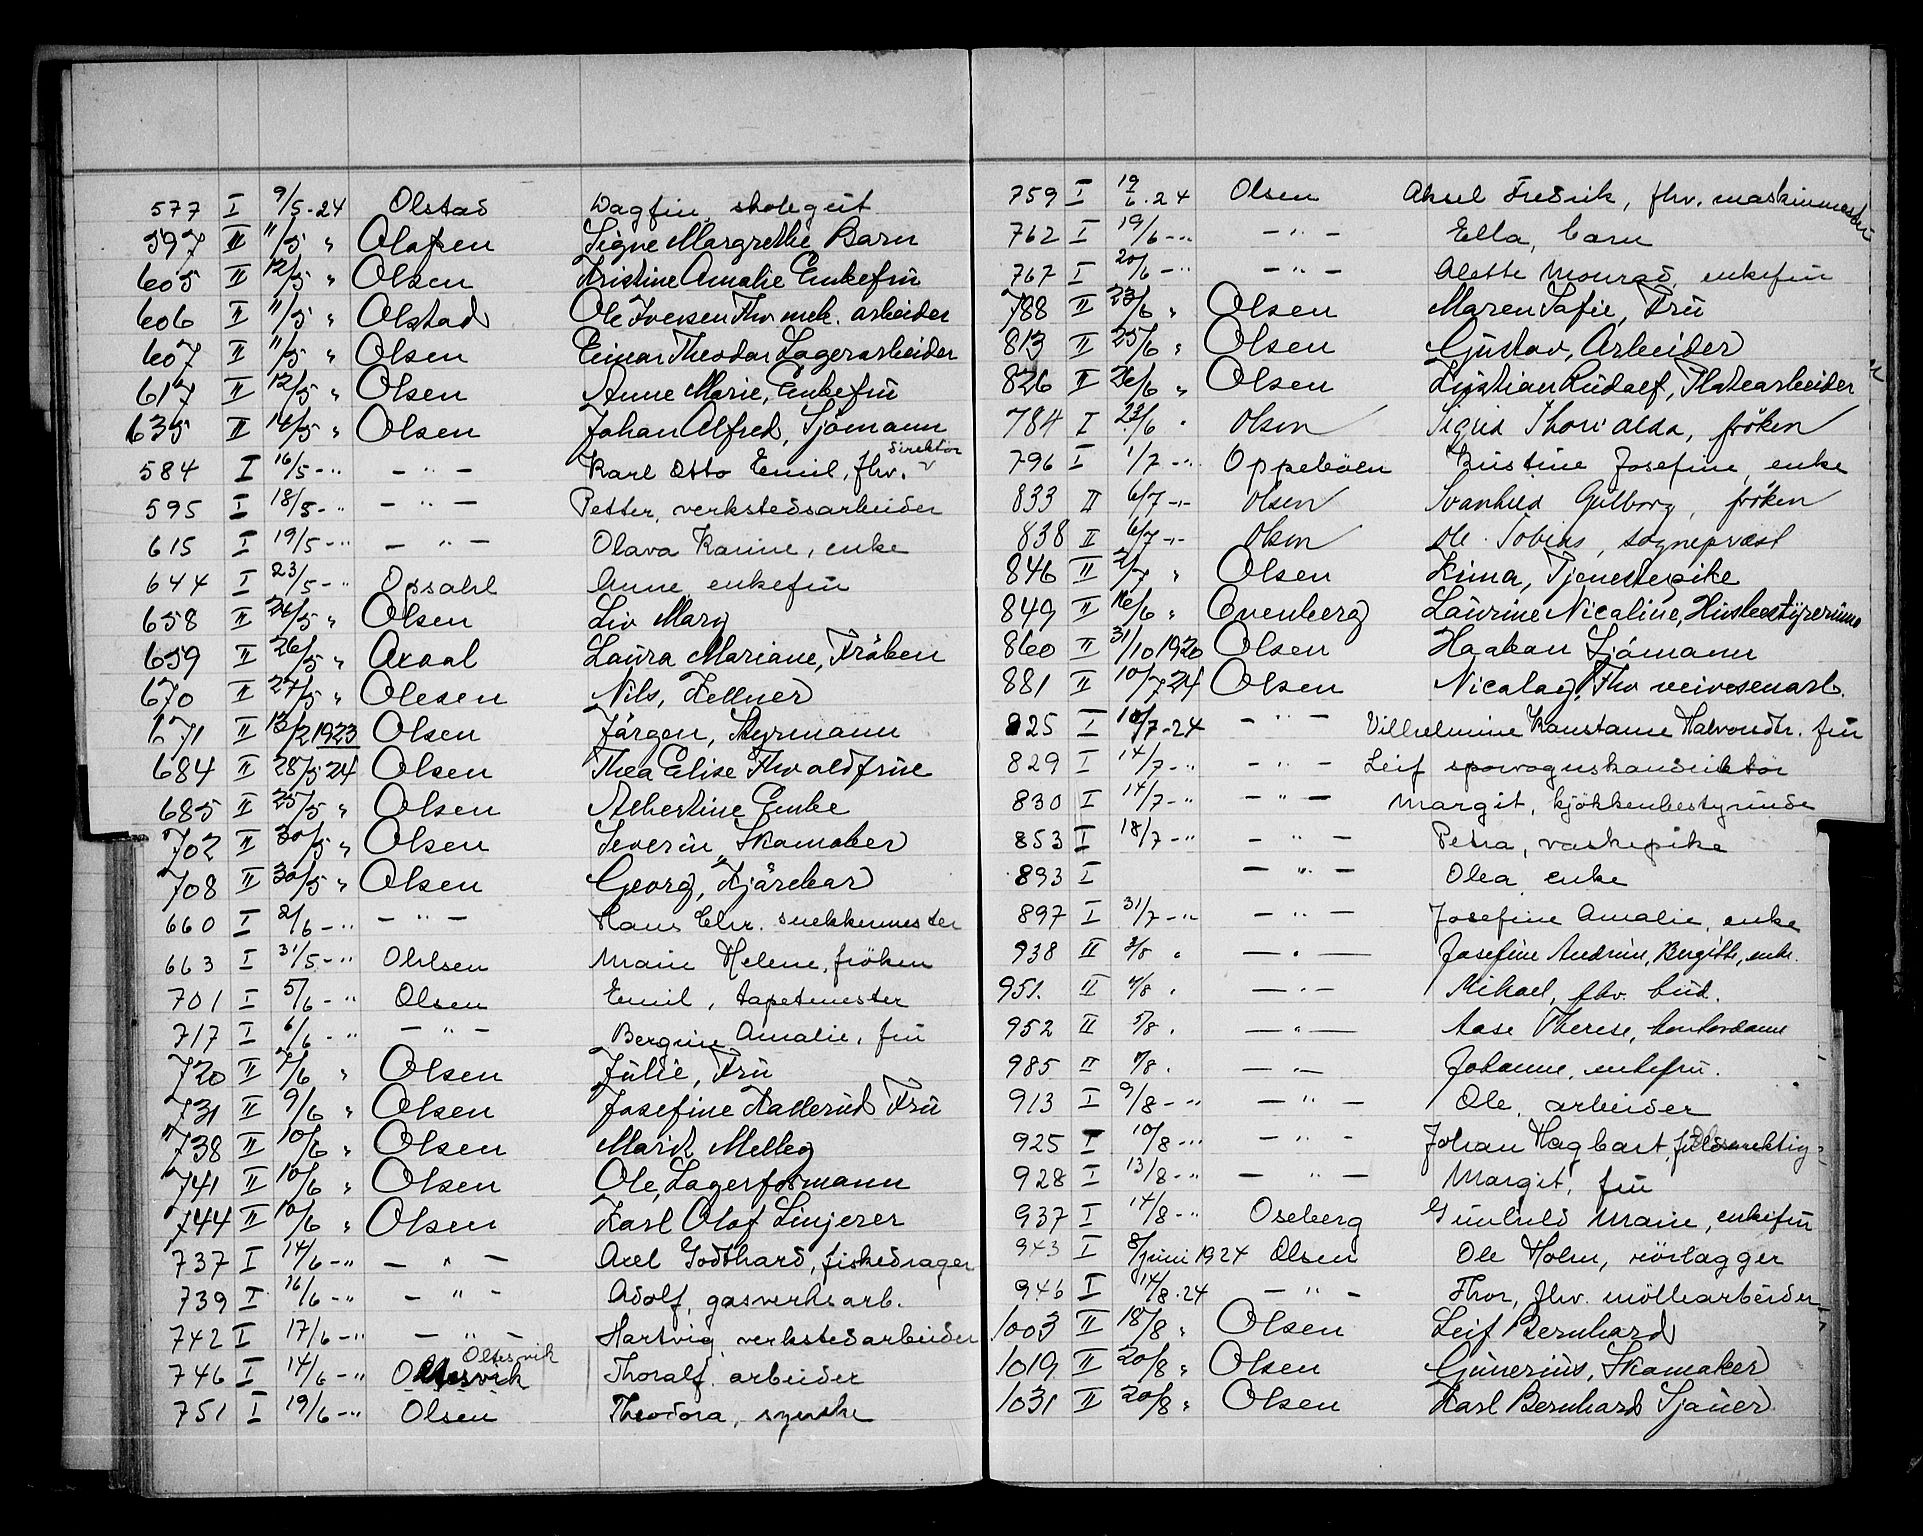 577 I 9/5-24 Olstad Dagfin, skolegut
597 II 11/5 " Olafsen Signe Margrethe Barn
605 II 12/5 " Olsen Kristine Amalie Enkefru
606 II 11/5 " Olstad Ole Iversen Fhv mek. arbeider
607 II 11/5 " Olsen Einar Theodor Lagerarbeider
617 II 12/5 " Olsen Anne Marie, Enkefru
635 II 14/5 " Olsen Johan Alfred, Sjømann
584 I 16/5-" - " - Karl Otto Emil, fhv. direktør
595 I 18/5-" - " - Petter, verkstedsarbeider
615 I 19/5-" - " - Olava Karine, enke
644 I 23/5-" Opsahl Anne enkefru
658 II 24/5 " Olsen Liv Mary
659 II 26/5 " Laura Mariane, Frøken
670 II 27/5 " Olesen Nils, Kellner
671 II 13/2 1923 Olsen Jørgen, Styrmann
684 II 28/5 24 Olsen Thea Elise Fhv oldfrue
685 II 25/5 " Olsen Albertine Enke
702 II 30/5 " Olsen Severin, Skomaker
708 II 30/5 " Olsen Georg, Kjørekar
660 I 2/6-" - " - Hans Chr. snekkermester
663 I 31/5-" Ohlsen Marie Helene, frøken
701 I 5/6-" Olsen Emil, tapetmester
717 I 6/6-" - " - Bergine Amalie, fru
720 II 7/6 " Olsen Julie, Fru
731 II 9/6 " Olsen Josefine Kallerud Fru
738 II 10/6 " Olsen Marit Melleg
741 II 10/6 " Olsen Ole, Lagerformann
744 II 10/6 " Olsen Karl Olaf Linjerer
737 I 14/6-" - " - Axel Godthard, fiskedrager
739 I 16/6-" - " - Adolf, gasverksarb.
742 I 17/6-" - " - Hartvig, verkstedarbeider
746 I 14/6-" Oltesvik Thoralf, arbeider
751 I 19/6-" Olsen Theodora, syerske
759 I 19/6.24 Olsen Aksel Fredrik, fhv. maskinmester
762 I 19/6-" - " - Ella, barn
767 I 20/6-" - " - Alette Monrad, enkefru
788 II 23/6 " Olsen Maren Sofie, Fru
813 II 25/6 " Olsen Gustav, Arbeider
826 II 26/6 " Olsen Kristian Rudolf, Platearbeider
784 I 23/6 " Olsen Sigrid Thorvalda, frøken
796 I 1/7-" Oppebøen Kristine Josefine, enke
833 II 6/7-" Olsen Svanhild Gulborg, frøken
838 II 6/7-" Olsen Ole Tobias, sogneprest
846 II 2/7 " Olsen Kima, Tjenestepike
849 II 16/6 " Ovenberg Laurine Nicoline, Husbestyrerinne
860 II 31/10 1920 Olsen Haakon Sjømann
881 II 10/7 24 Olsen Nicolay, Fhv veivesenarb.
825 I 10/7-24 - " - Vilhelmine Konstanse Halvorsdtr. fru
829 I 14/7-" - " - Leif sporvognskonduktør
830 I 14/7-" - " - Margit, kjøkkenbestyrinde
853 I 18/7-" - " - Petra, vaskepike
893 I - " - Olea, enke
897 I 31/7-" - " - Josefine Amalie, enke
938 II 2/8 " - " - Josefine Andrine, Birgitte, enke.
951. II 4/8 " - " - Mikael, fhv. bud.
952 II 5/8 " - " - Aase Therese, kontordame
985 II 7/8 " - " - Johanne, enkefru.
913 I 9/8-" - " - Ole, arbeider
925 I 10/8-" - " - Johan Hagbart, fuldmektig
928 I 13/8-" - " - Margit, fru
937 I 14/8-" Oseberg Gunhild Marie, enkefru
943 I 8/juni 1924 Olsen Ole Holm, rørlægger
946 I 14/8.24 - " - Thor, fhv. møllearbeider
1003 II 18/8 " Olsen Leif Bernhard
1019 II 20/8 " Olsen Gunerius, Skomaker
1031 II 20/8 " Olsen Karl Bernhard Sjauer